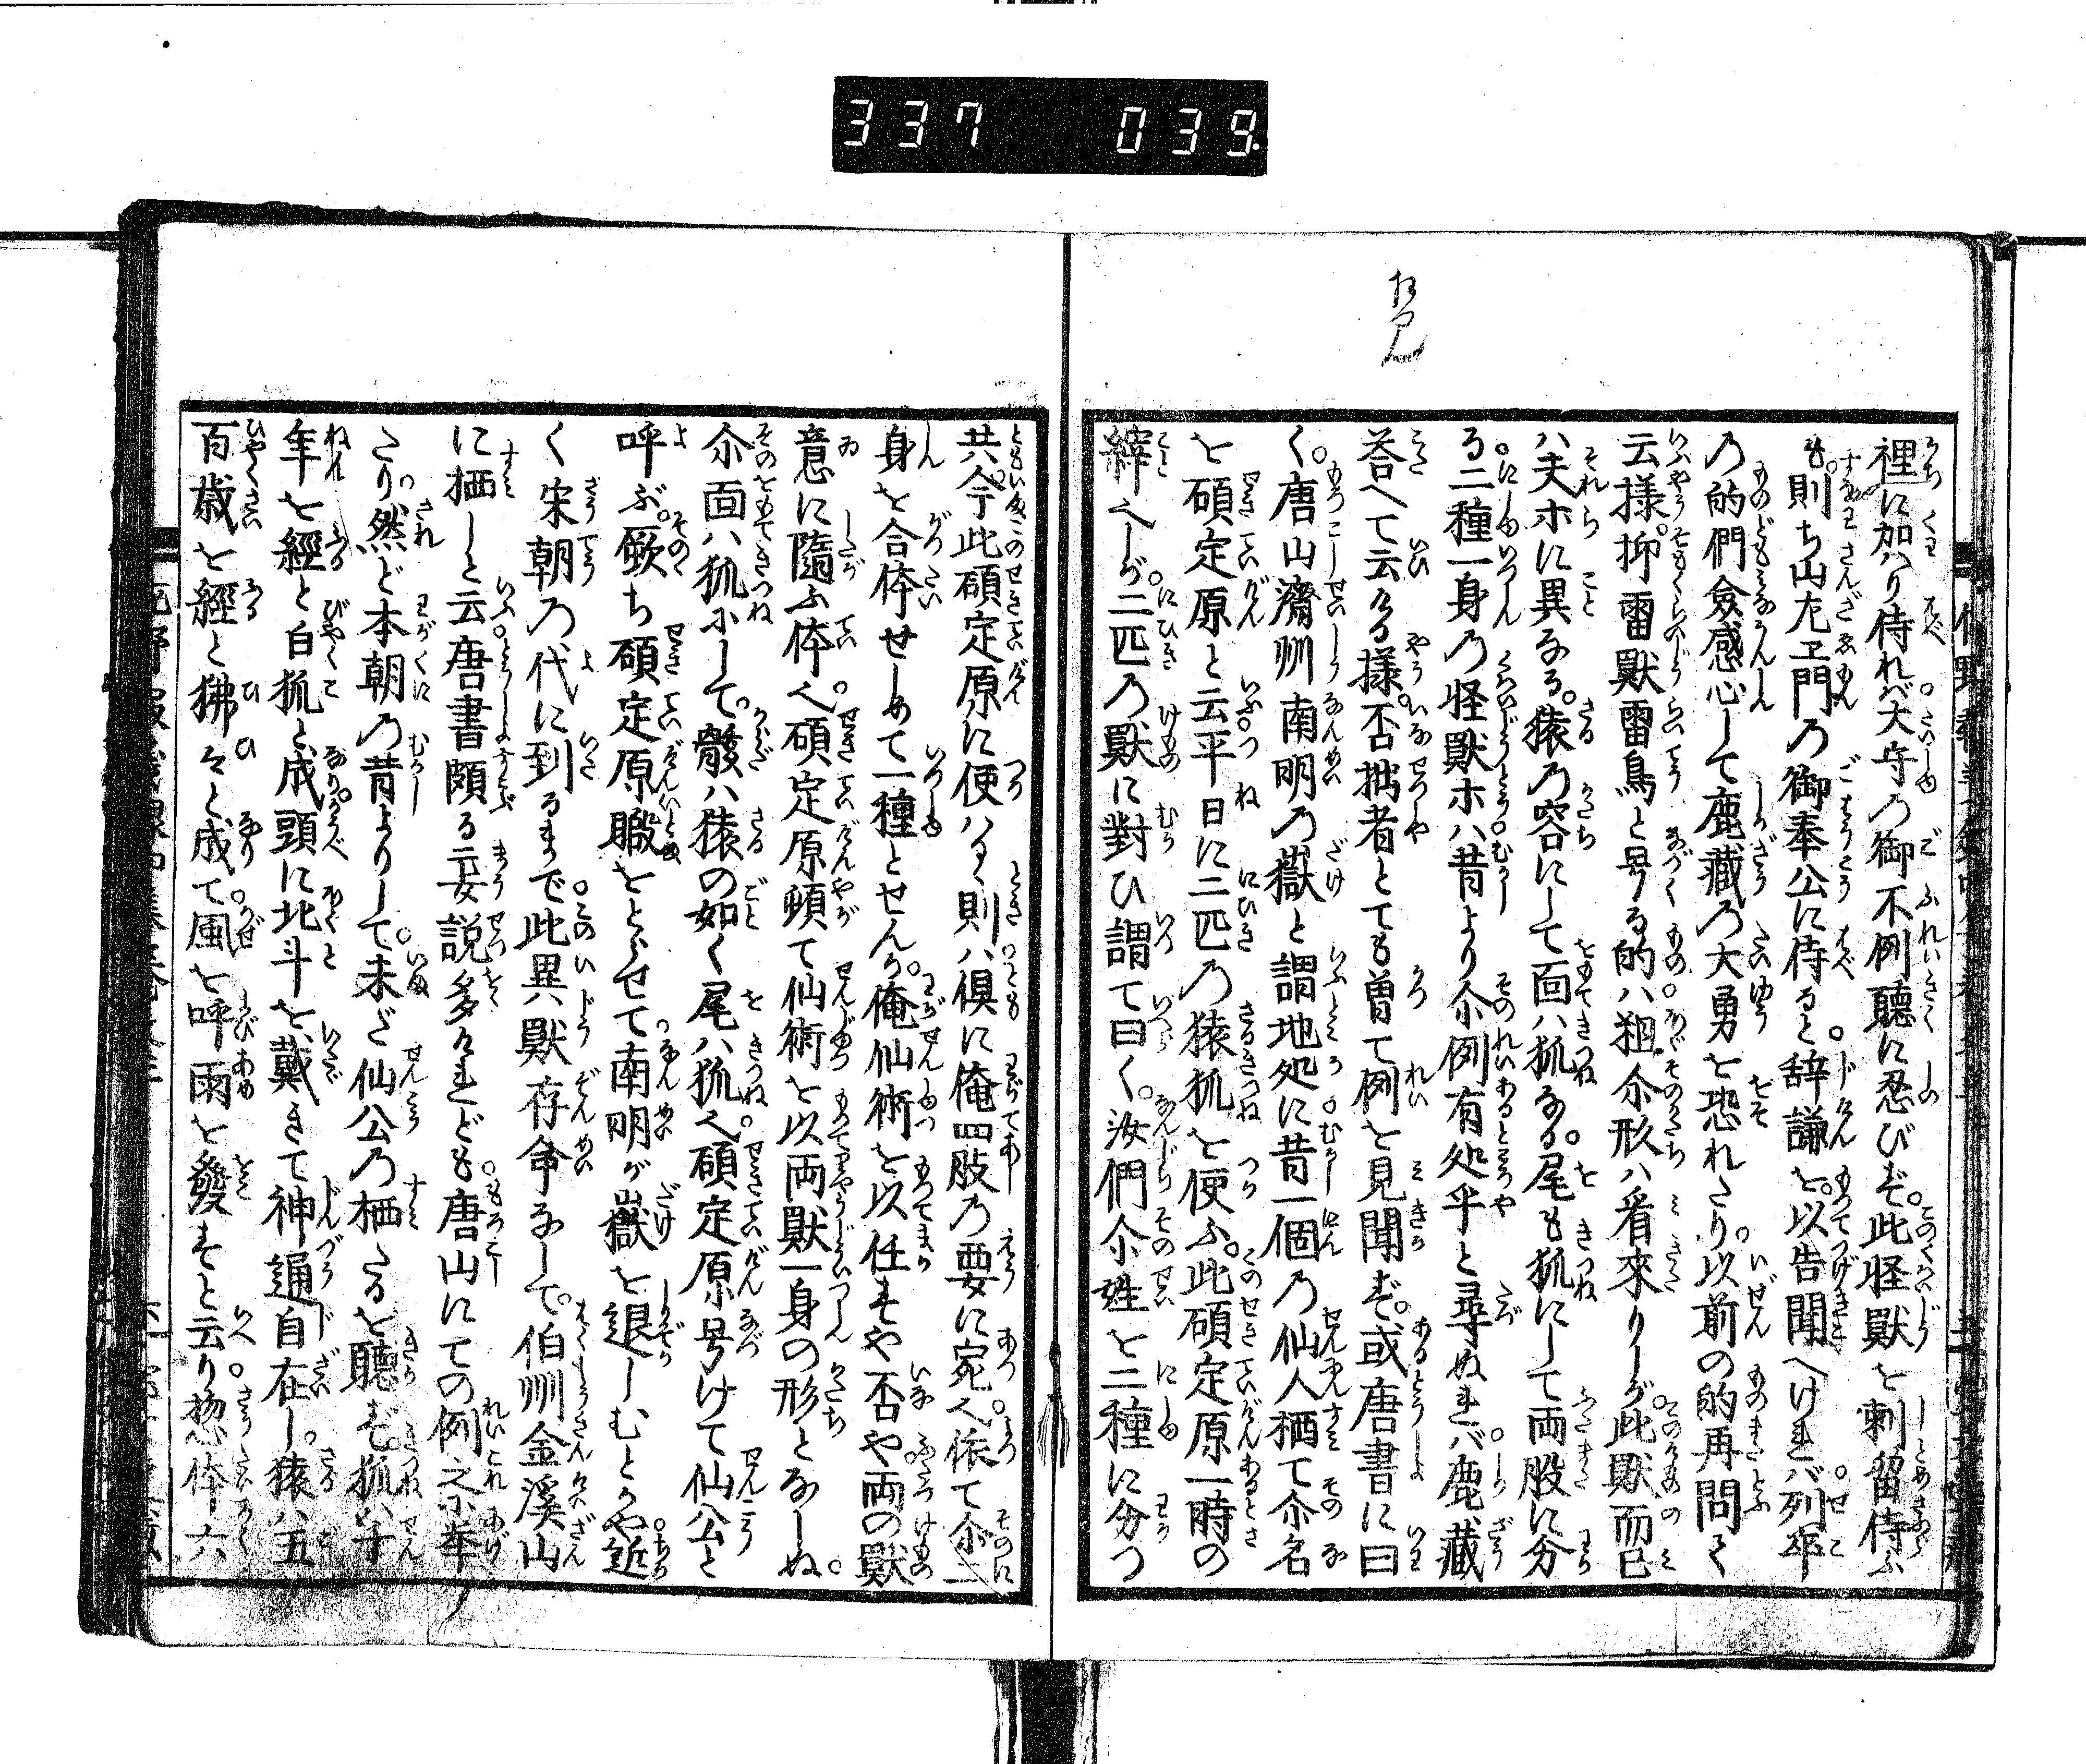 337 039
裡に加り侍れバ大守乃御不例聽に忍びず。此怪獸を刺留侍ふ
も。則ち山左ヱ門乃御奉公に侍ると辞謙を以告聞へけれバ列卒
乃的們僉感心して鹿藏乃大勇を恐れたり以前の的再問て
云様。抑雷獸雷鳥と号る的ハ粗尒形ハ看來りしが此獸而已
ハ夫ホに異なる。猿乃容にして面ハ狐なる。尾も狐にして両股に分
る。二種一身乃怪獸ホハ昔より尒例有処乎と尋ぬれバ鹿藏
荅へて云ける様。否拙者とても曽て例を見聞ず。或唐書に曰
く。唐山濟州南明乃嶽と謂地処に昔一個乃仙人栖て尒名
を碩定原と云平日に二匹乃猿狐を使ふ。此碩定原一時の
縡しが。二匹乃獸に對ひ謂て曰く。汝們尒姓を二種に分つ
共今此碩定原に使ハるゝ則ハ倶に俺四股乃要に宛依て尒二
身を合体せしめて一種とせんが俺仙術を以任すや否や両の獸
意に隨ふ体。碩定原頓て仙術を以両獸一身の形となしぬ。
尒面ハ狐にして。骸ハ猿の如く尾ハ狐。碩定原号けて仙公と
呼ぶ。厥ち碩定原職をとらせて南明が嶽を退しむとかや近
く宋朝乃代に到るまで此異獸存命なして。伯州金溪山
に栖しと云唐書頗る妄説多けれども唐山にての例之尒挙
たり。然ど本朝乃昔よりして。未ざ仙公乃栖たるを聽ず。狐ハ千
年を經と白狐と成頭に北斗を戴きて神通自在し。猿ハ五
百歳を經と狒々と成て風を呼雨を發すと云り惣体六